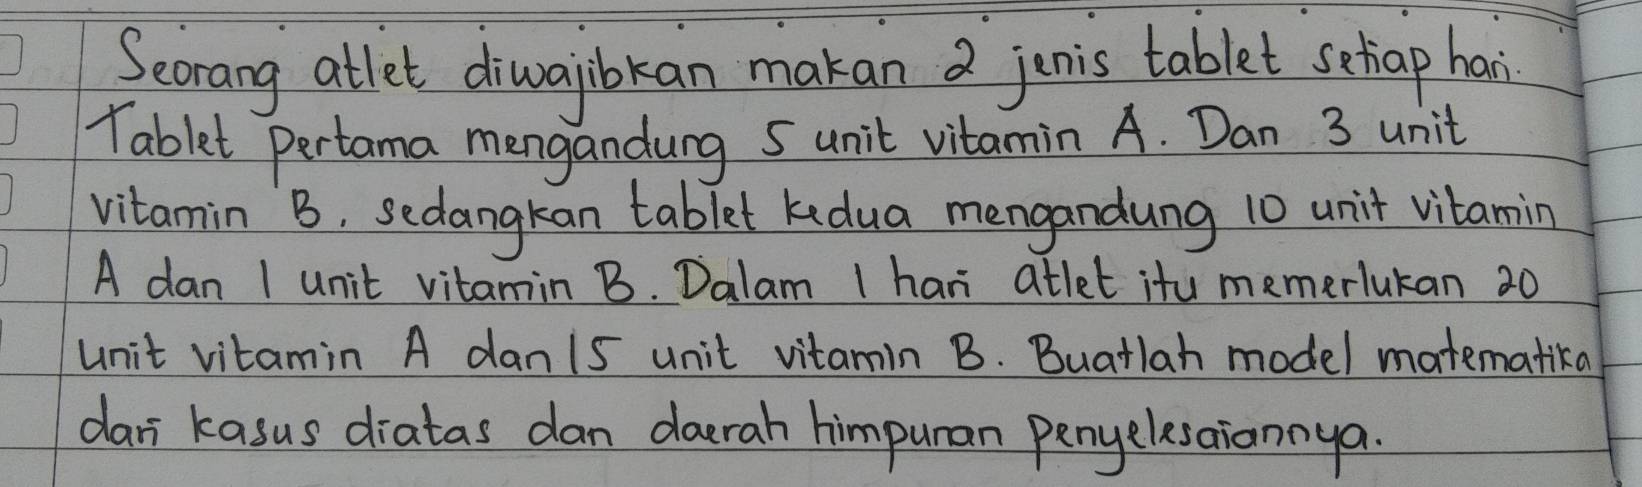 Seorang atlet diwajibkan makan 2 jenis tablet setiap hari.
Tablet Pertama mengandung 5 unit vitamin A. Dan 3 unit
vitamin B, sedangkan tablet kedua mengandung 10 unit vitamin
A dan 1 unit vitamin B. Dalam 1 hari atlet itu memerlukan 20
unit vitamin A dan 15 unit vitamin B. Buatlah model matematika
dari kasus diatas dan daerah himpunan Penyelesaiannya.